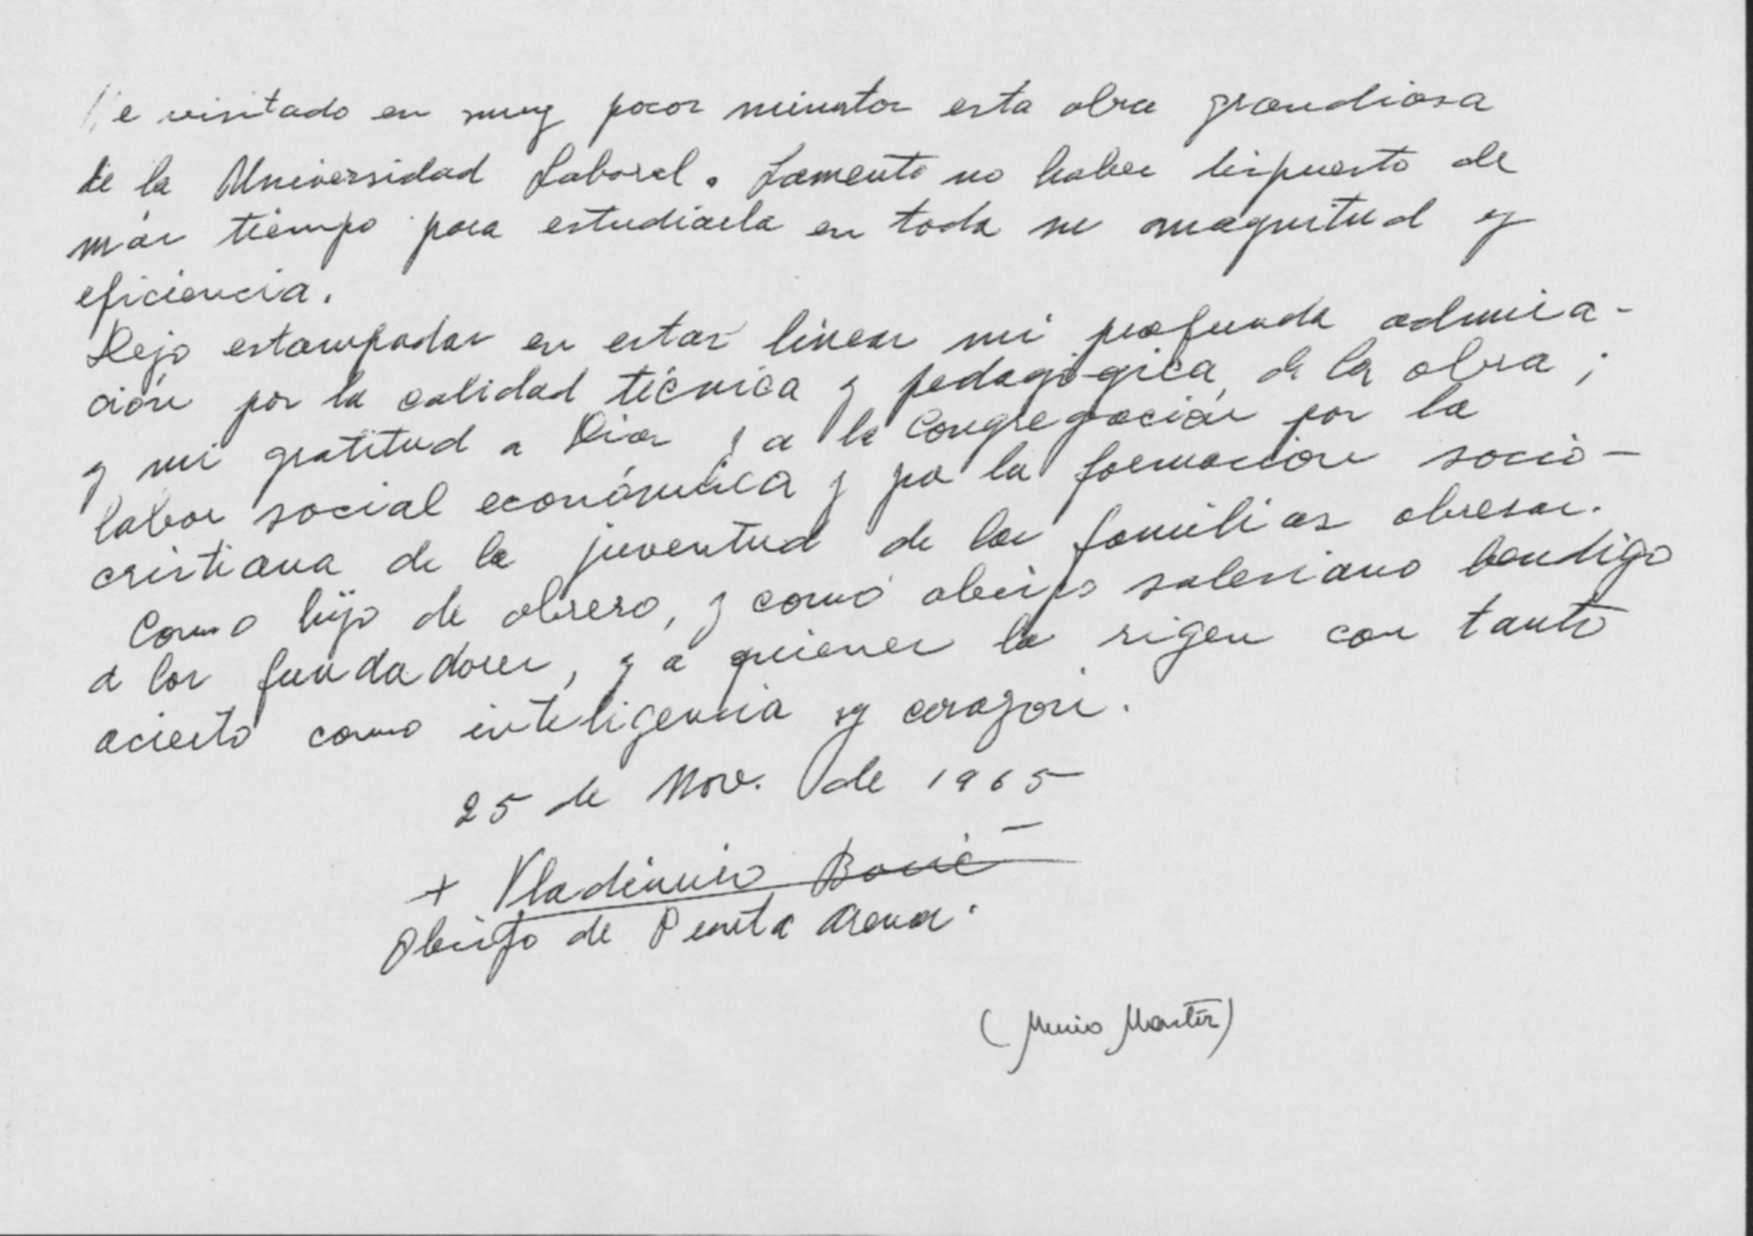 He visitado en muy pocos minutos esta obra grandiosa
de la Universidad Laboral. Lamento no haber dispuesto de
más tiempo para estudiarla en toda su magnitud y
eficiencia.
Dejo estampadas en estas lineas mi profunda admira-
ción por la calidad técnica y pedagógica de la obra;
y mi gratitud a Dios y a la Congregación por la
labor social económica y por la formación socio-
cristiana de la juventud de las familias obreras.
Como hijo de obrero, y como obispo salesiano bendigo
a los fundadores, y a quienes la rigen con tanto
acierto como inteligencia y corazón.
25 de Nov. de 1965
+ Vladimiro Boric
Obispo de Punta Arenas.